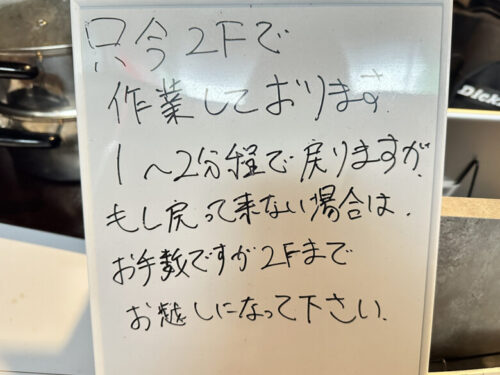 只今2Fで
作業しております.
1～2分程で戻りますが,
もし戻って来ない場合は.
お手数ですが2Fまで
お越しになって下さい.
Dick